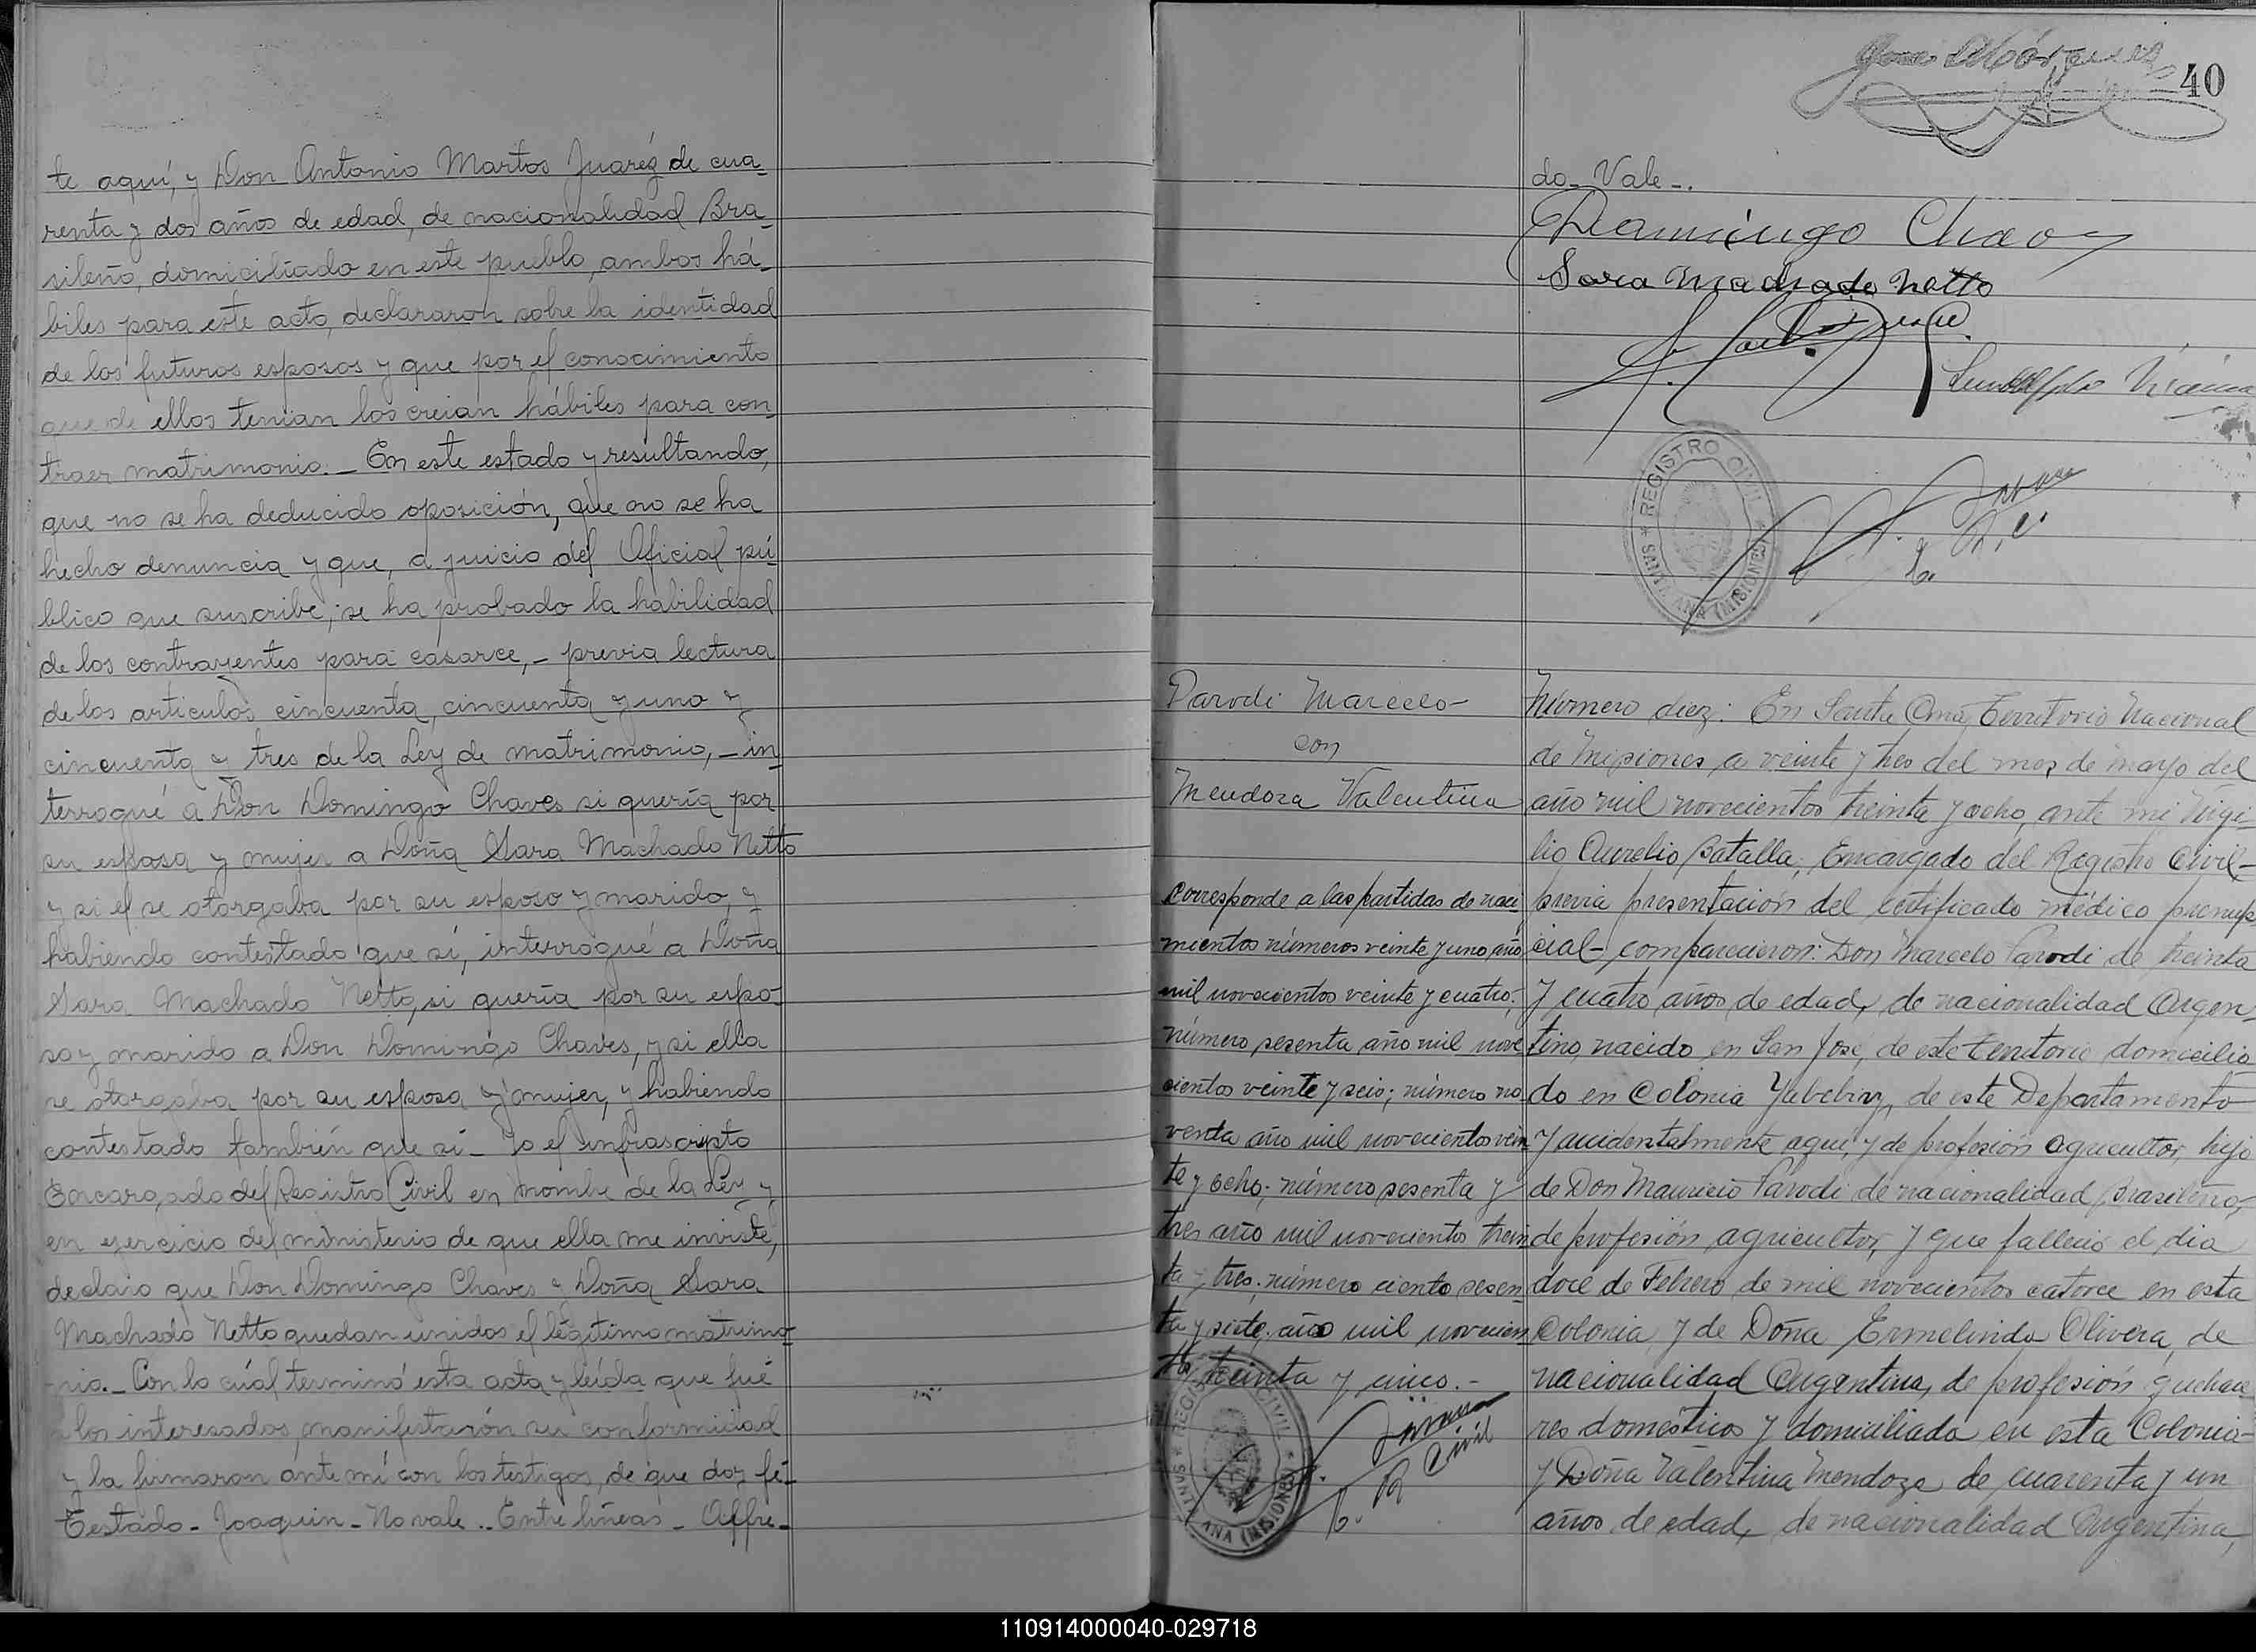 te aquí, y Don Antonio Martos Juaréz de cua-
renta y dos años de edad, de nacionalidad Bra-
sileño, domiciliado en este pueblo, ambos há-
biles para este acto, declararon sobre la identidad
de los futuros esposos y que por el conocimiento
que de ellos tenian los creian hábiles para con-
traer matrimonio. – En este estado y resultando,
que no se ha deducido oposición, que no se ha
hecho denuncia y que, a juicio del Oficial pú-
blico que suscribe, se ha probado la habilidad
de los contrayentes para casarce, – previa lectura
de los articulos cincuenta, cincuenta y uno y
cincuenta y tres de la Ley de matrimonio, – in-
terrogué a Don Domingo Chaves si quería por
su esposa y mujer a Doña Sara Machado Netto
y si el se otorgaba por su esposo y marido, y
habiendo contestado que sí, interrogué a Doña
Sara Machado Netto, si quería por su espo-
so y marido a Don Domingo Chaves, y si ella
se otorgaba por su esposa y mujer, y habiendo
contestado también que sí – Yo el infrascripto
Encargado del Registro Civil en nombre de la Ley y
en ejercicio del ministerio de que ella me inviste,
declaro que Don Domingo Chaves y Doña Sara
Machado Netto quedan unidos el légitimo matrimo-
nio. – Con lo cúal terminó esta acta y leída que fué
a los interesados, manifestarón su conformidad
y la firmaron ante mí con los testigos, de que doy fé –
Testado – Joaquin – No vale – Entre lineas – Affre-
40
do – Vale –.
Domingo Chaves
Sara Machado Netto
REGISTRO CIVIL
SANTA ANA (MISIONES)
Parodi Marcelo –
con
Mendoza Valentina
Corresponde a las partidas de naci
mientos números veinte y uno año
mil novecientos veinte y cuatro;
número sesenta año mil nove
cientos veinte y seis; número no
venta año mil novecientos vein
te y ocho; número sesenta y
tres año mil novecientos trein
ta y tres; número ciento sesen
ta y siete, año mil novecien
tos treinta y cinco. –
REGISTRO CIVIL
SANTA ANA (MISIONES)
R. Civil
Número diez: En Santa Ana, Territorio Nacional
de Misiones a veinte y tres del mes de mayo del
año mil novecientos treinta y ocho, ante mi Virgi-
lio Aurelio Batalla, Encargado del Registro Civil –
previa presentación del certificado médico prenup-
cial – comparecieron: Don Marcelo Parodi de treinta
y cuatro años de edad, de nacionalidad Argen-
tino, nacido en San José, de este territorio domicilia
do en Colonia Yabebiry, de este Departamento
y accidentalmente aquí, y de profesión agricultor, hijo
de Don Mauricio Parodi de nacionalidad Brasileño,
de profesión agricultor, y que falleció el dia
doce de Febrero de mil novecientos catorce en esta
Colonia, y de Doña Ermelinda Olivera, de
nacionalidad Argentina, de profesión quehace
res domésticos y domiciliada en esta Colonia –
y Doña Valentina Mendoza de cuarenta y un
años de edad, de nacionalidad Argentina,
110914000040-029718